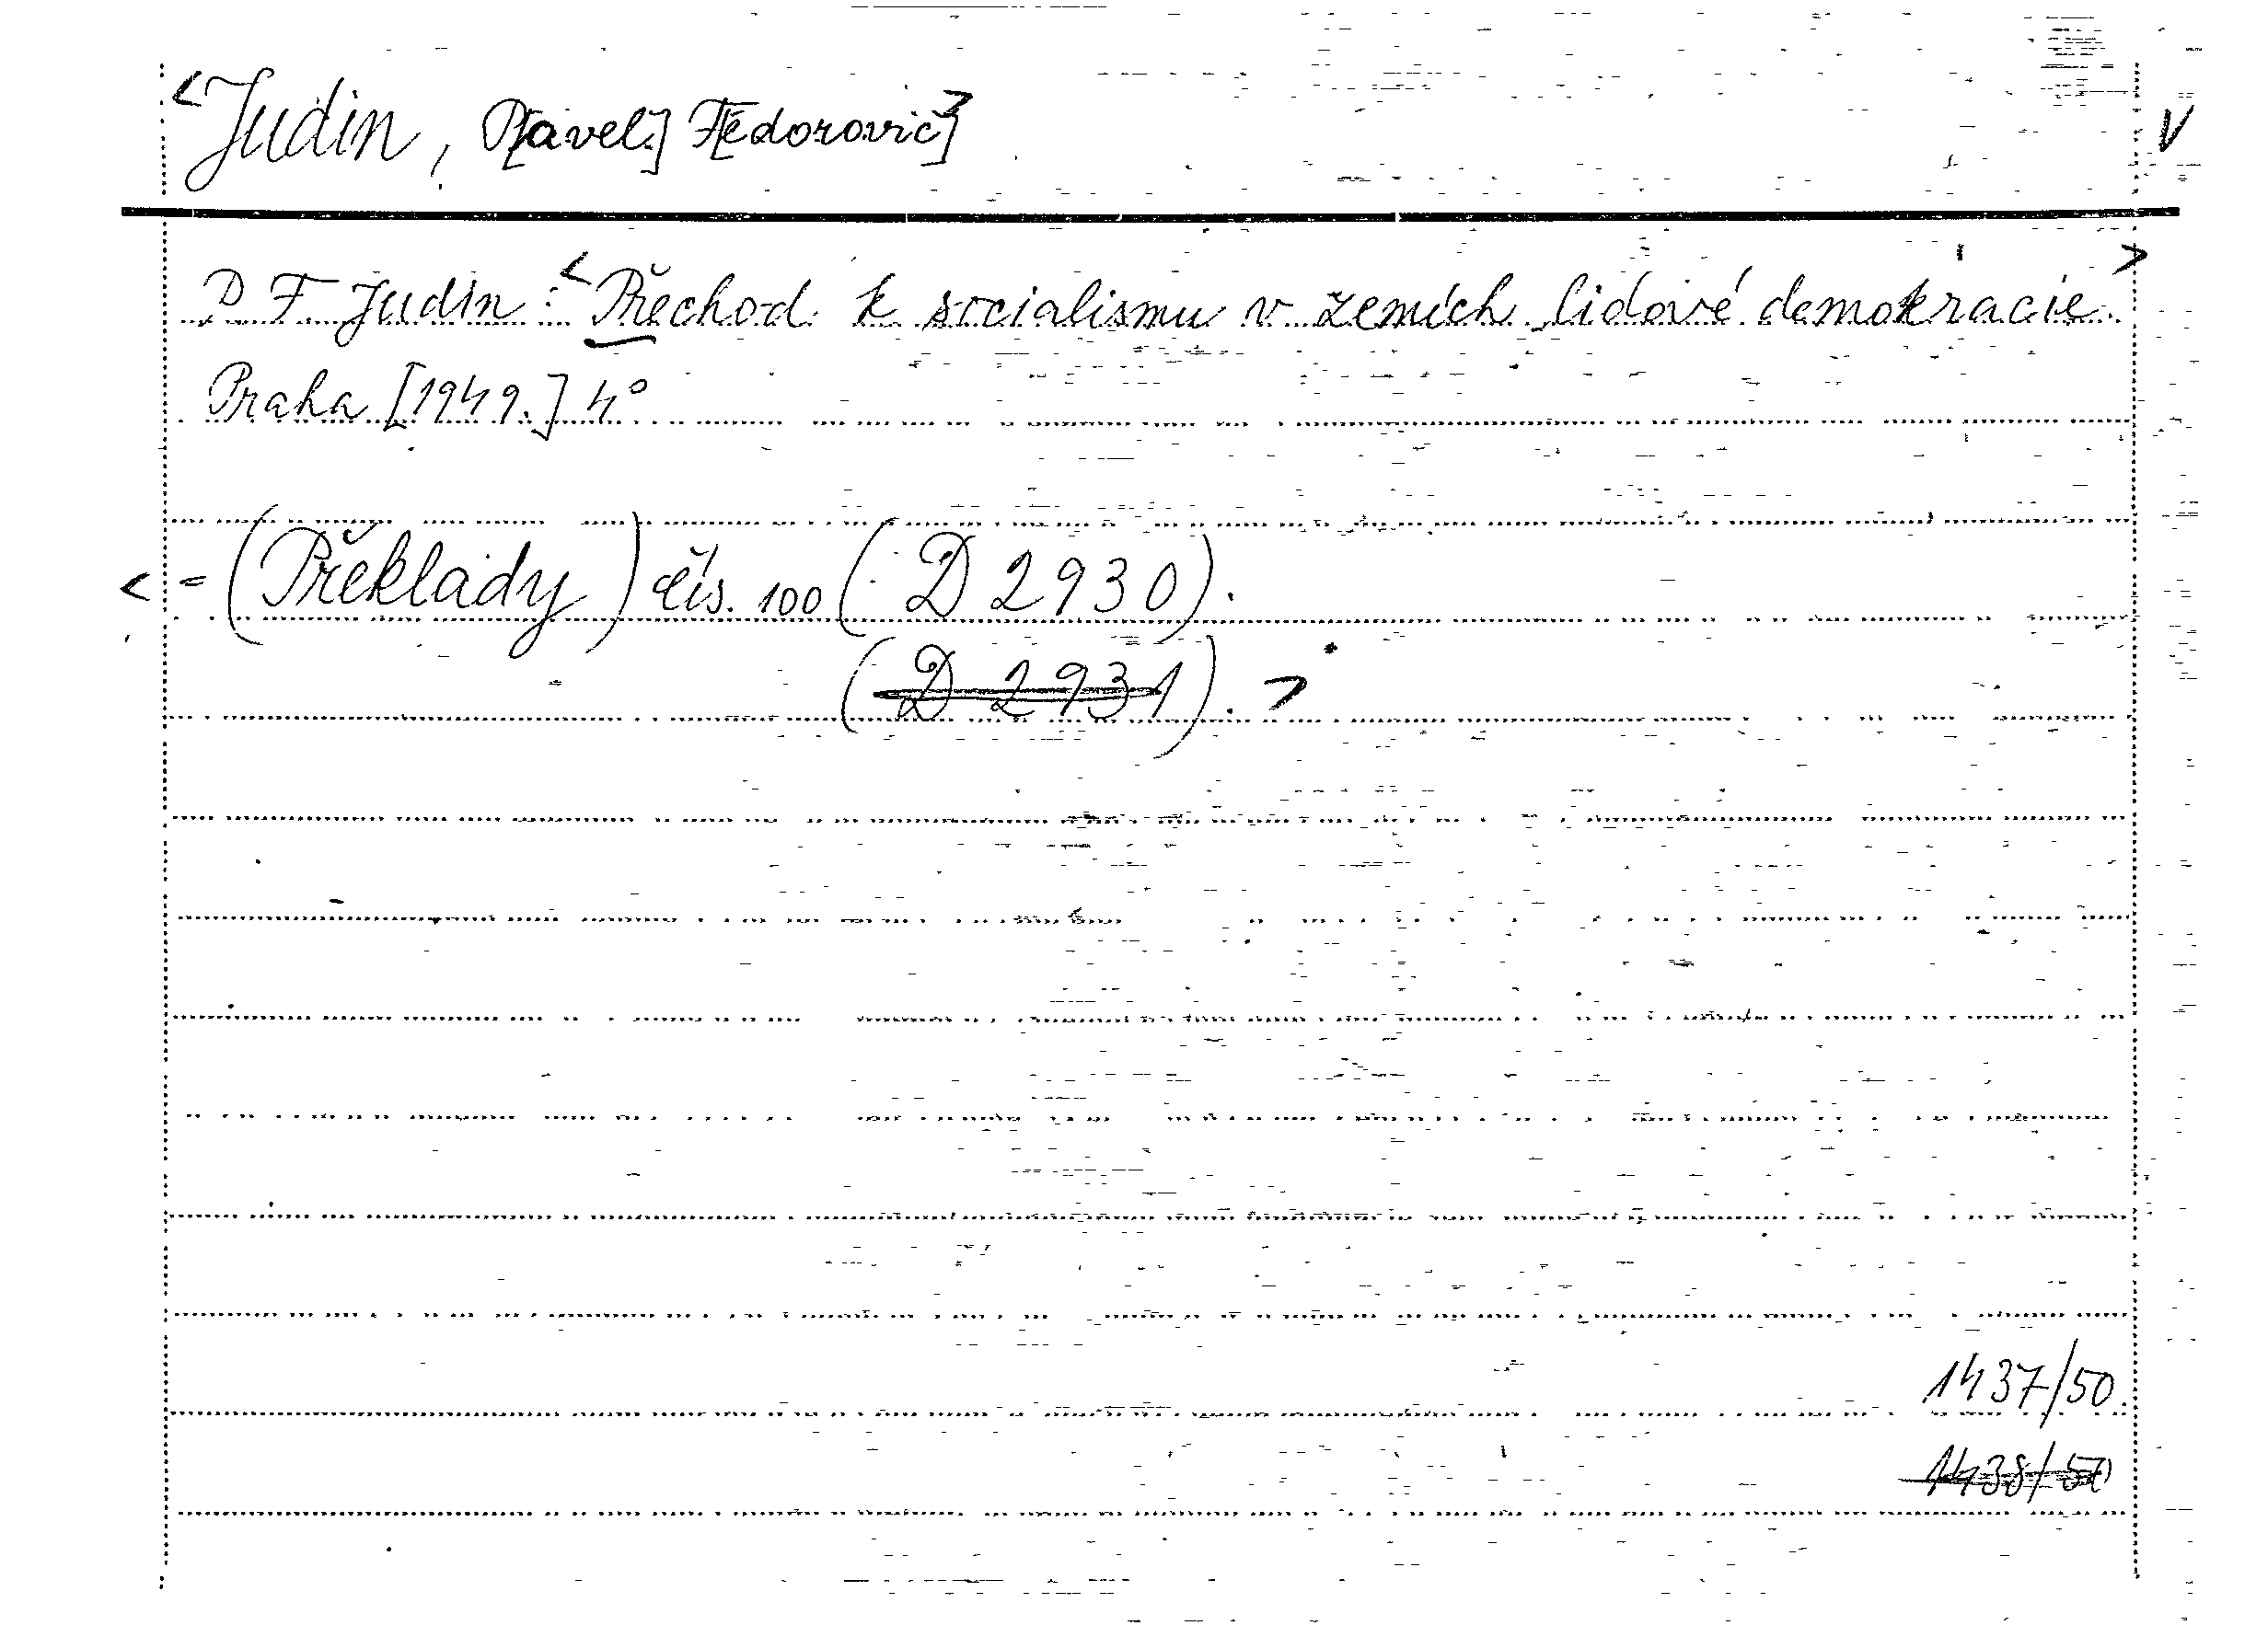 <Judin, P[avel] F[edorovič]> V
P. F. Judin: <Přechod k socialismu v zemích lidové demokracie.>
Praha [1949.] 4°
<= (Překlady) čís. 100 (D 2930).
(D 2931). >
1437/50.
1438/50